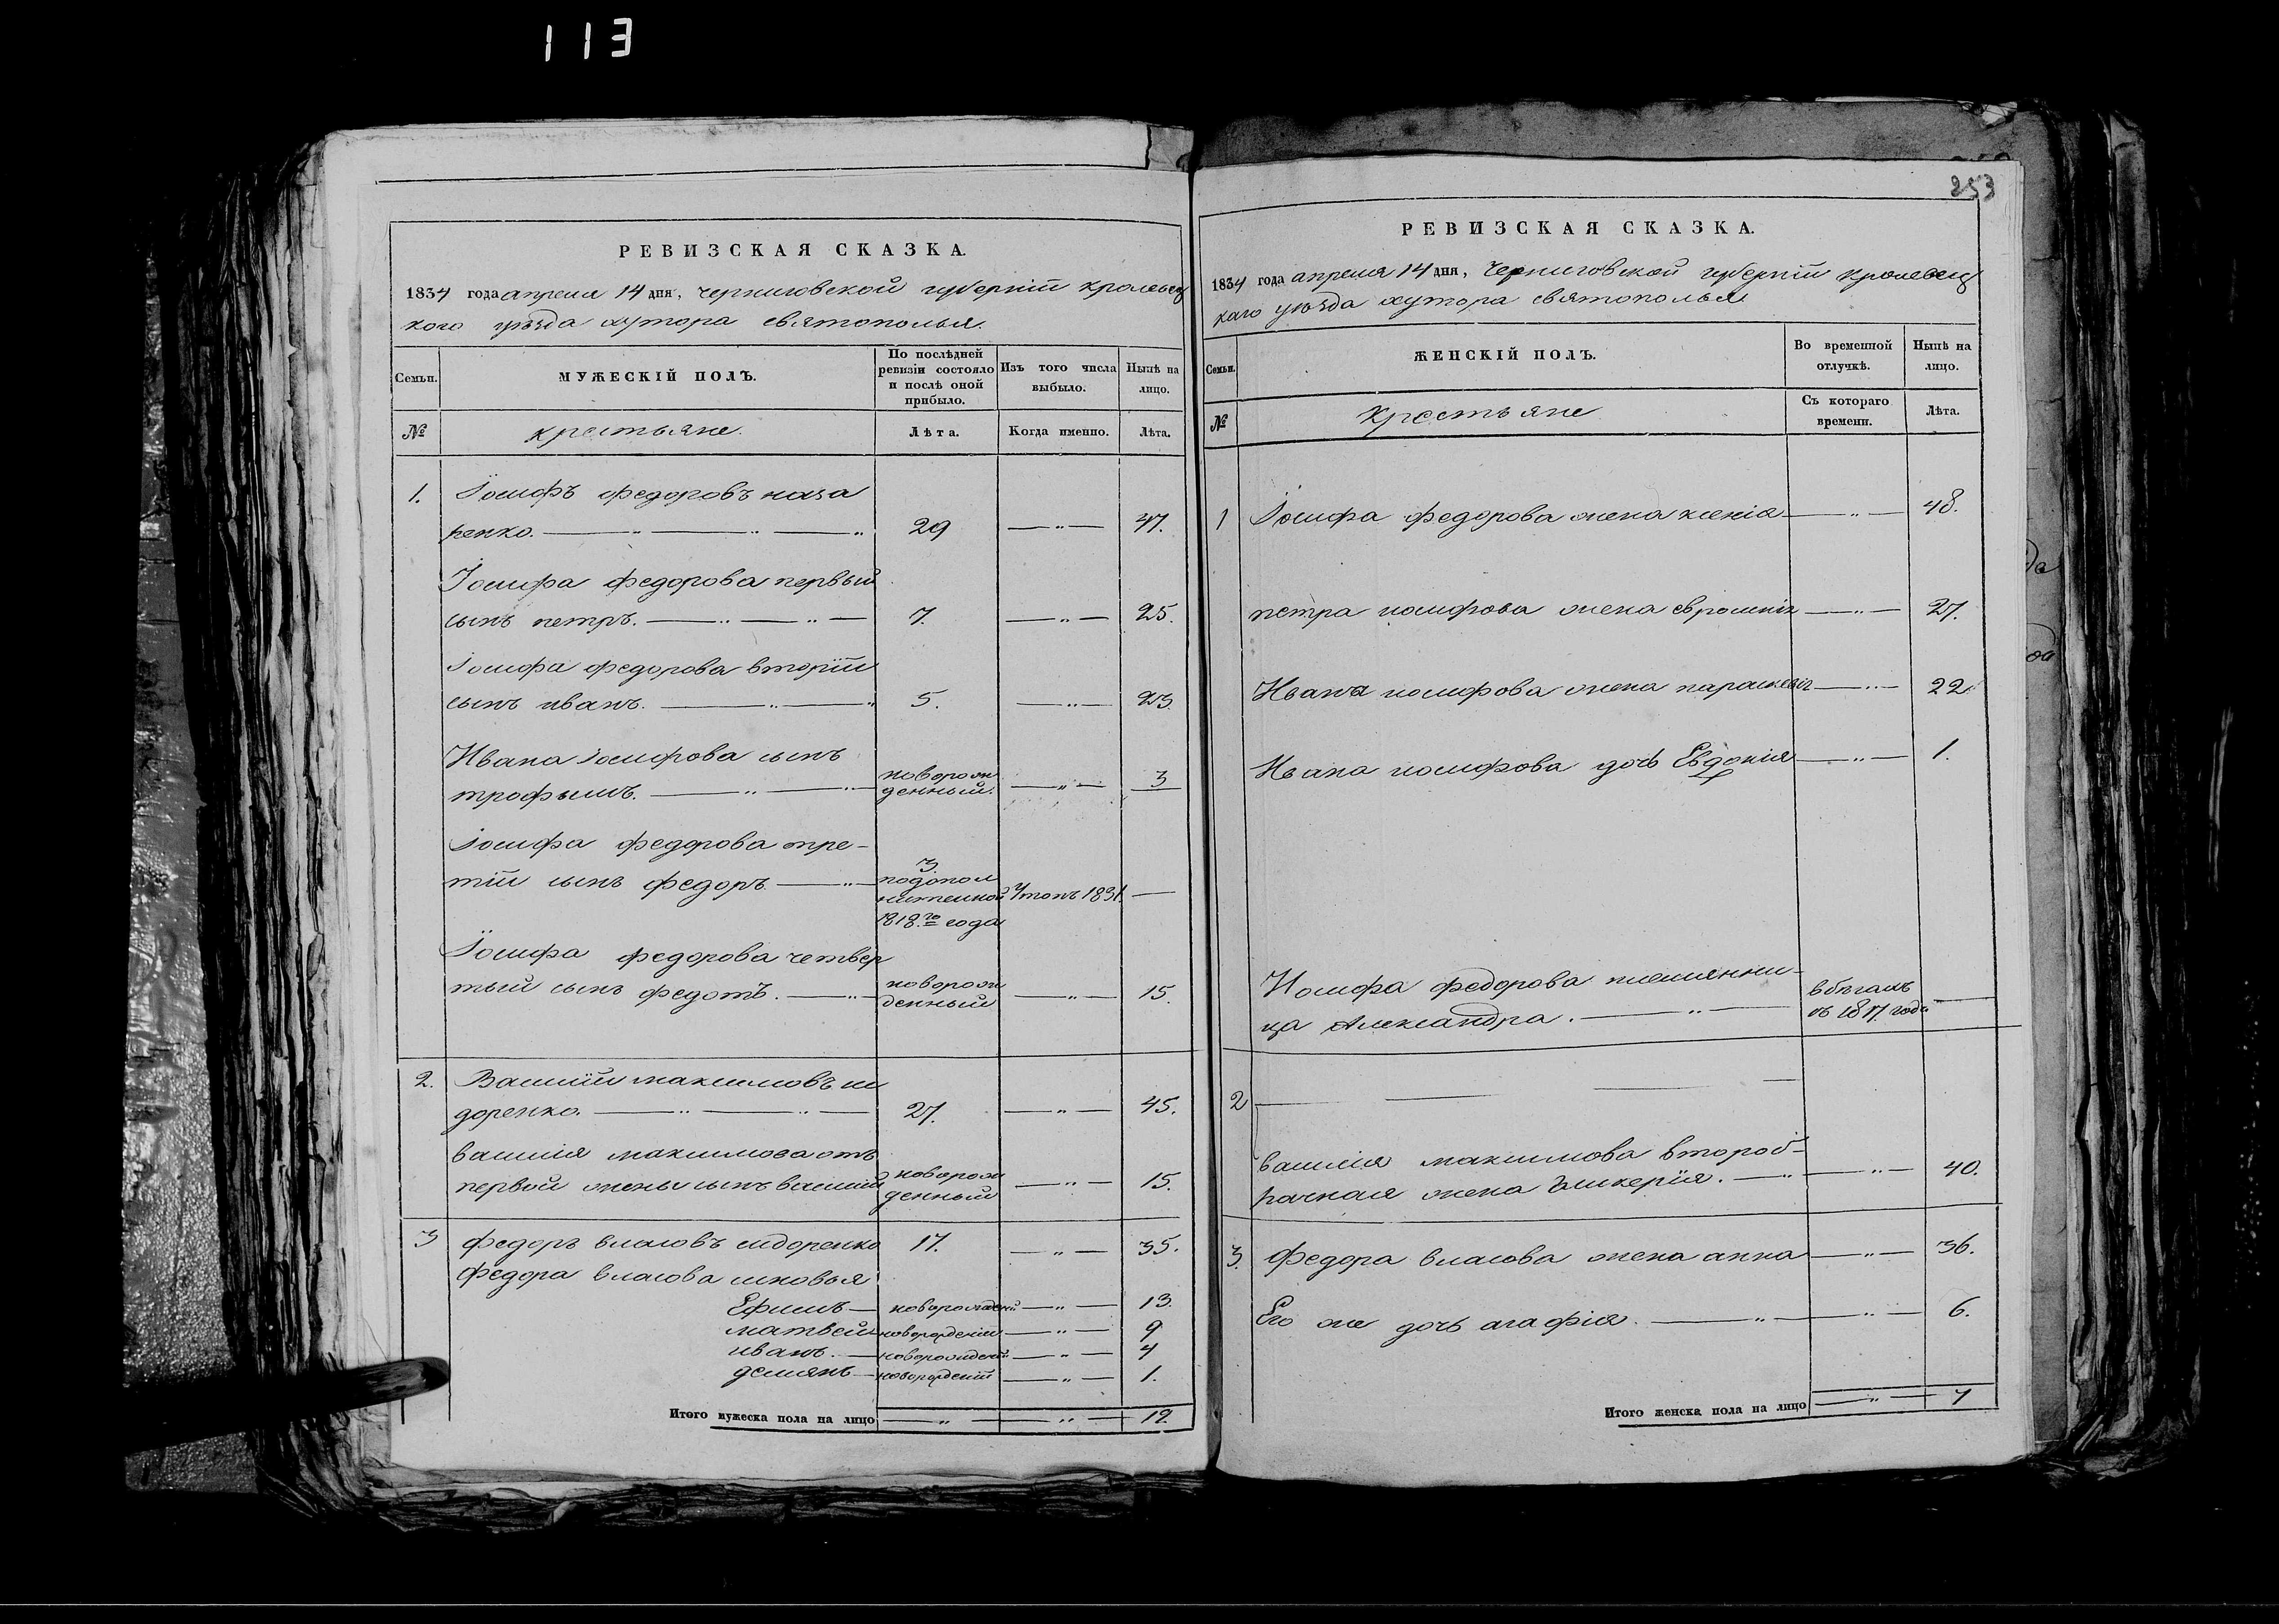 113
РЕВИЗСКАЯ СКАЗКА.
1834 года апреля 14 дня, черниговской губерніи кролевец
кого уезда хутора святополья.
Семьи.
МУЖЕСКІЙ ПОЛЪ.
По послѣдней
ревизіи состояло
и послѣ оной
прибыло.
Изъ того числа
выбыло.
Нынѣ на
лицо.
№
крестьяне.
Лѣта.
Когда именно.
Лѣта.
1. Іосифъ федоровъ наза
ренко. 29 47.
Іосифа федорова первый
сынъ петръ. 7. 25.
Іосифа федорова вторій
сынъ иванъ. 5. 23.
Ивана Іосифова сынъ
трофымъ. новорож
денный. 3
Іосифа федорова тре-
тій сынъ федоръ 3
подопол
нителной
1818го года
1831.
Іосифа федорова четвер
тый сынъ федотъ. новорож
денный 15.
2. Василій максимовъ си
доренко. 27. 45.
василія максимова отъ
первой жены сынъ василій новорож
денный 15.
3 федоръ власовъ сидоренко 17. 35.
федора власова сновья
Ефимъ 13.
матвей 9
иванъ. 4
демянъ 1.
Итого мужеска пола на лицо 12.
253
РЕВИЗСКАЯ СКАЗКА.
1834 года апреля 14 дня, Черниговской губерніи кролевец
каго уезда хутора святополья
Семьи.
ЖЕНСКІЙ ПОЛЪ.
Во временной
отлучкѣ.
Нынѣ на
лицо.
№
Крестьяне
Съ котораго
времени.
Лѣта.
1 Іосифа федорова жена ксенія 48.
петра иосифова жена 27.
Ивана иосифова жена параскевія 22.
Ивана иосифова дочь Евдокія 1.
Иосифа федорова племянни-
ца Александра. в бегахъ
съ 1817 года
2
василія максимова второб-
рачная жена 40.
3. Федора власова жена анна 36.
Его же дочь агафія. 6.
Итого женска пола на лицо 7